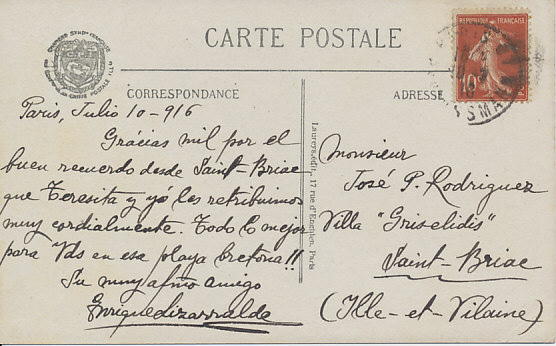 CARTE POSTALE
REPUBLIQUE FRANÇAISE
10
CORRESPONDANCE
ADRESSE
Paris, Julio 10-916
Grácias mil por el
buen recuerdo desde Saint-Briac
que Teresita y yó les retribuimos
muy cordialmente. Todo lo mejor
para Vds en esa playa bretona!!
Su muy afmo amigo
Enrique Lizarralde
Laureys, édit, 17 rue d'Enghien, Paris
Monsieur
José P. Rodriguez
Villa "Griselidis"
Saint-Briac
(Ille-et-Vilaine)